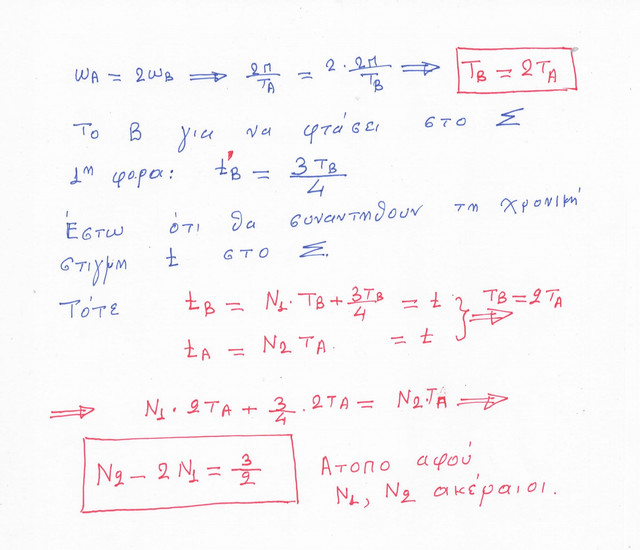 ωA = 2ωB ⟹ 2π/TA = 2 · 2π/TB ⟹ TB = 2TA
Το Β για να φτάσει στο Σ
1η φορα: t'B = 3TB/4
Έστω ότι θα συναντηθουν τη χρονική
στιγμη t στο Σ.
Τότε tB = N1·TB + 3TB/4 = t } ⟹ TB = 2TA
tA = N2 TA. = t
⟹ N1 · 2TA + 3/4 · 2TA = N2·TA ⟹
N2 – 2N1 = 3/2 Ατοπο αφού
N1, N2 ακέραιοι.